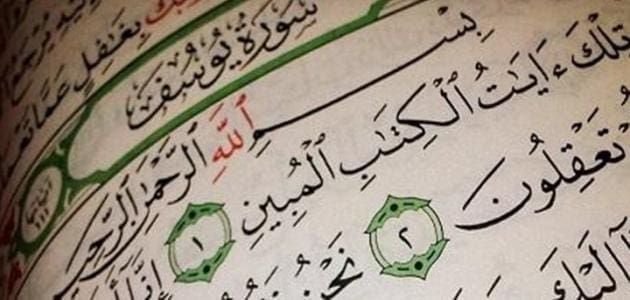 بِغَٰفِلٍ عَمَّا
سُورَةُ يُوسُفَ
بِسْمِ ٱللَّهِ ٱلرَّحْمَٰنِ ٱلرَّحِيمِ
تِلْكَ ءَايَٰتُ ٱلْكِتَٰبِ ٱلْمُبِينِ ١ إِنَّا
تَعْقِلُونَ ٢ نَحْنُ
إِلَيْكَ